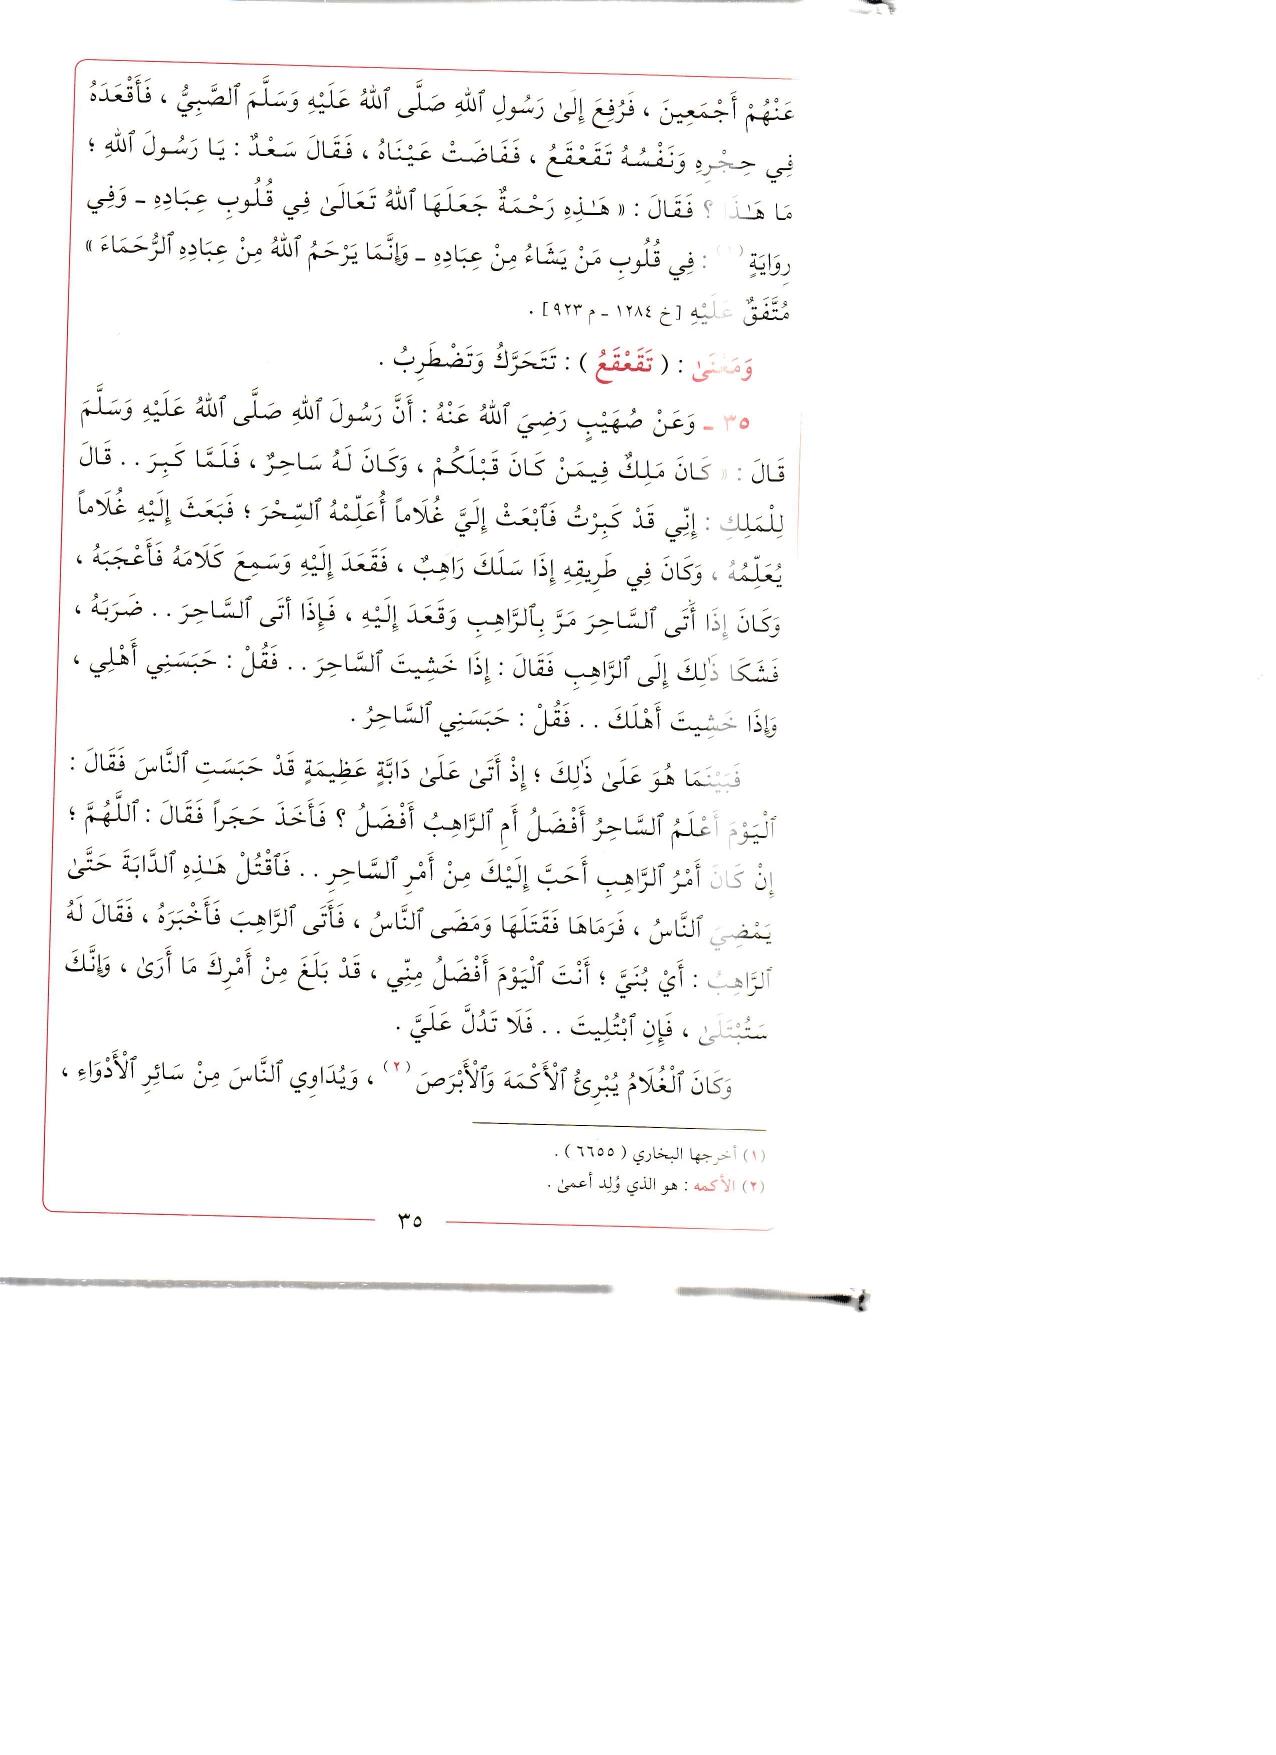 عَنْهُمْ أَجْمَعِينَ ، فَرُفِعَ إِلَىٰ رَسُولِ ٱللهِ صَلَّى ٱللهُ عَلَيْهِ وَسَلَّمَ ٱلصَّبِيُّ ، فَأَقْعَدَهُ
فِي حِجْرِهِ وَنَفْسُهُ تَقَعْقَعُ ، فَفَاضَتْ عَيْنَاهُ ، فَقَالَ سَعْدٌ : يَا رَسُولَ ٱللهِ ؛
مَا هَـٰذَا ؟ فَقَالَ : « هَـٰذِهِ رَحْمَةٌ جَعَلَهَا ٱللهُ تَعَالَىٰ فِي قُلُوبِ عِبَادِهِ ـ وَفِي
رِوَايَةٍ (١) : فِي قُلُوبِ مَنْ يَشَاءُ مِنْ عِبَادِهِ ـ وَإِنَّمَا يَرْحَمُ ٱللهُ مِنْ عِبَادِهِ ٱلرُّحَمَاءَ »
مُتَّفَقٌ عَلَيْهِ [خ ١٢٨٤ ـ م ٩٢٣] .
وَمَعْنَىٰ : ( تَقَعْقَعُ ) : تَتَحَرَّكُ وَتَضْطَرِبُ .
٣٥ ـ وَعَنْ صُهَيْبٍ رَضِيَ ٱللهُ عَنْهُ : أَنَّ رَسُولَ ٱللهِ صَلَّى ٱللهُ عَلَيْهِ وَسَلَّمَ
قَالَ : « كَانَ مَلِكٌ فِيمَنْ كَانَ قَبْلَكُمْ ، وَكَانَ لَهُ سَاحِرٌ ، فَلَمَّا كَبِرَ . . قَالَ
لِلْمَلِكِ : إِنِّي قَدْ كَبِرْتُ فَٱبْعَثْ إِلَيَّ غُلَاماً أُعَلِّمْهُ ٱلسِّحْرَ ؛ فَبَعَثَ إِلَيْهِ غُلَاماً
يُعَلِّمُهُ ، وَكَانَ فِي طَرِيقِهِ إِذَا سَلَكَ رَاهِبٌ ، فَقَعَدَ إِلَيْهِ وَسَمِعَ كَلَامَهُ فَأَعْجَبَهُ ،
وَكَانَ إِذَا أَتَى ٱلسَّاحِرَ مَرَّ بِٱلرَّاهِبِ وَقَعَدَ إِلَيْهِ ، فَإِذَا أَتَى ٱلسَّاحِرَ . . ضَرَبَهُ ،
فَشَكَا ذَٰلِكَ إِلَى ٱلرَّاهِبِ فَقَالَ : إِذَا خَشِيتَ ٱلسَّاحِرَ . . فَقُلْ : حَبَسَنِي أَهْلِي ،
وَإِذَا خَشِيتَ أَهْلَكَ . . فَقُلْ : حَبَسَنِي ٱلسَّاحِرُ .
فَبَيْنَمَا هُوَ عَلَىٰ ذَٰلِكَ ؛ إِذْ أَتَىٰ عَلَىٰ دَابَّةٍ عَظِيمَةٍ قَدْ حَبَسَتِ ٱلنَّاسَ فَقَالَ :
ٱلْيَوْمَ أَعْلَمُ ٱلسَّاحِرُ أَفْضَلُ أَمِ ٱلرَّاهِبُ أَفْضَلُ ؟ فَأَخَذَ حَجَراً فَقَالَ : ٱللَّهُمَّ ؛
إِنْ كَانَ أَمْرُ ٱلرَّاهِبِ أَحَبَّ إِلَيْكَ مِنْ أَمْرِ ٱلسَّاحِرِ . . فَٱقْتُلْ هَـٰذِهِ ٱلدَّابَةَ حَتَّىٰ
يَمْضِيَ ٱلنَّاسُ ، فَرَمَاهَا فَقَتَلَهَا وَمَضَى ٱلنَّاسُ ، فَأَتَى ٱلرَّاهِبَ فَأَخْبَرَهُ ، فَقَالَ لَهُ
ٱلرَّاهِبُ : أَيْ بُنَيَّ ؛ أَنْتَ ٱلْيَوْمَ أَفْضَلُ مِنِّي ، قَدْ بَلَغَ مِنْ أَمْرِكَ مَا أَرَىٰ ، وَإِنَّكَ
سَتُبْتَلَىٰ ، فَإِنِ ٱبْتُلِيتَ . . فَلَا تَدُلَّ عَلَيَّ .
وَكَانَ ٱلْغُلَامُ يُبْرِئُ ٱلْأَكْمَهَ وَٱلْأَبْرَصَ (٢) ، وَيُدَاوِي ٱلنَّاسَ مِنْ سَائِرِ ٱلْأَدْوَاءِ ،
(١) أخرجها البخاري ( ٦٦٥٥ ) .
(٢) الأكمه : هو الذي وُلِد أعمىٰ .
٣٥